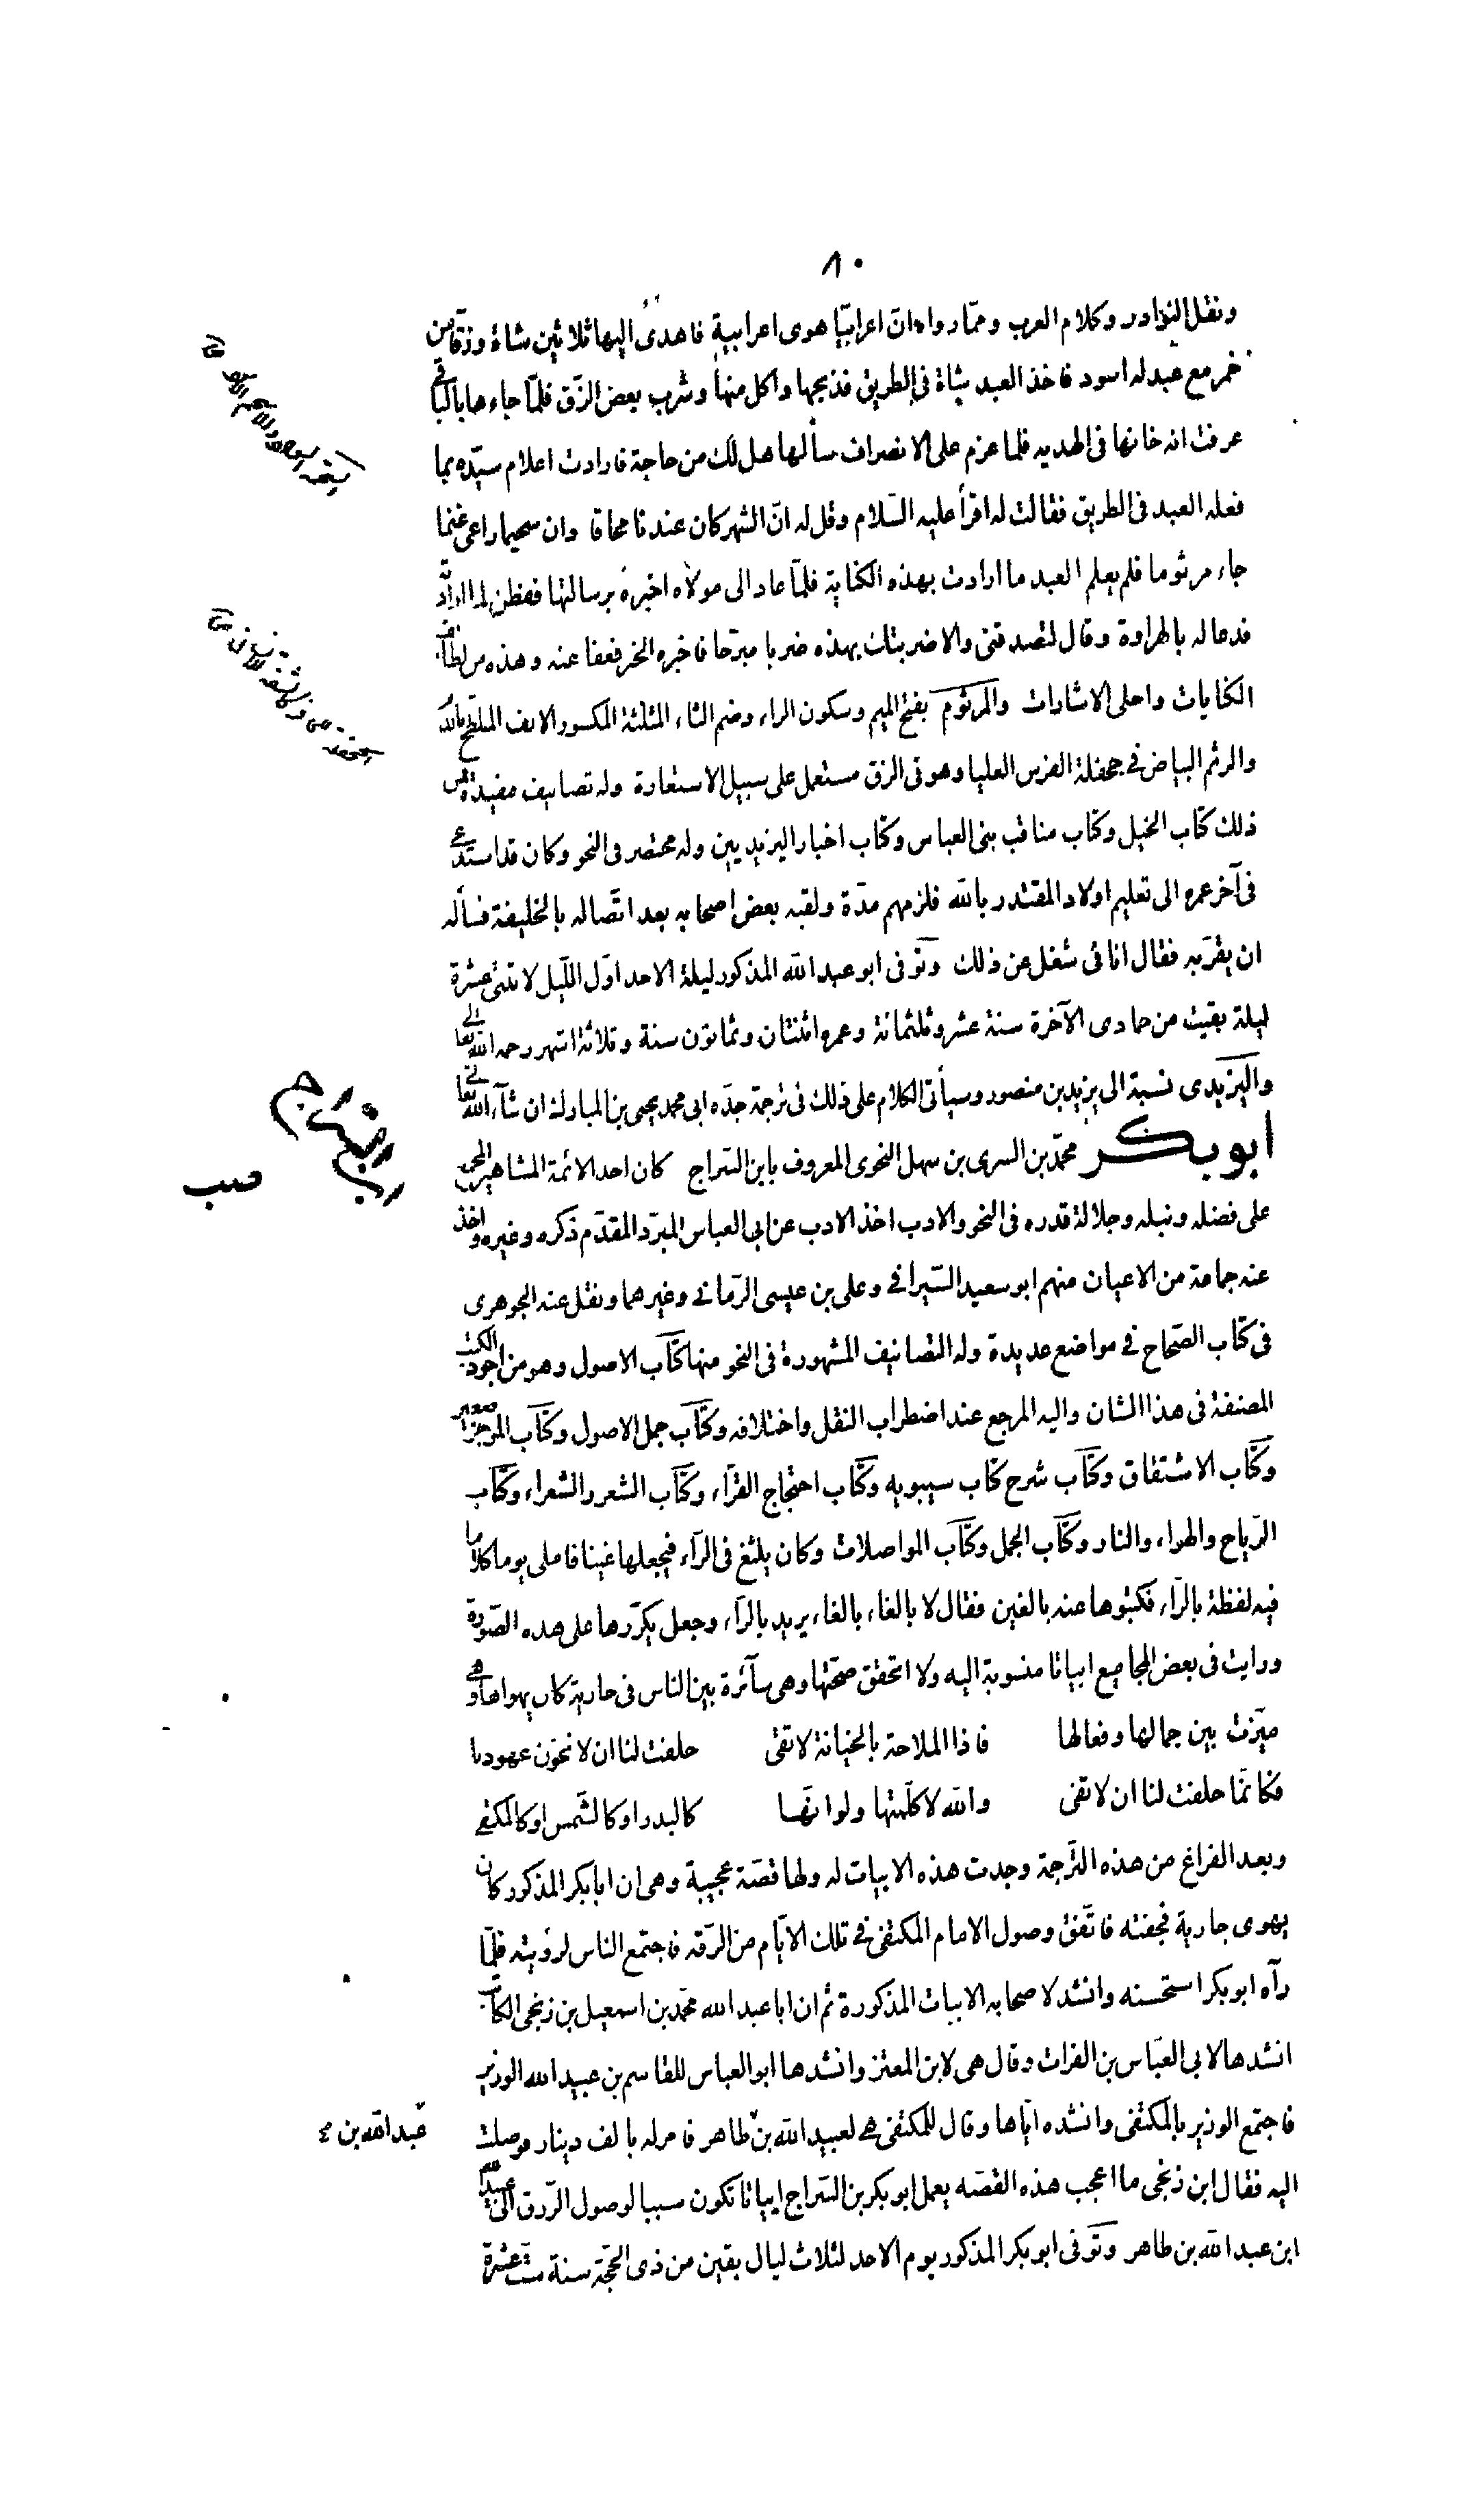 ٨٠
ونقل النوادر وكلام العرب وممّا رواه انّ اعرابيّا هوى اعرابية فاهدى اليها ثلاثين شاة وزقّا من
خمر مع عبد له اسود فاخذ العبد شاة فى الطريق فذبحها واكل منها وشرب بعض الزق فلمّا جاءها بالباقى
عرفت انه خانها فى الهديه فلما عزم على الانصراف سألها هل لك من حاجة فارادت اعلام سيّده بما
فعله العبد فى الطريق فقالت له اقرأ عليه السّلام وقل له انّ الشهر كان عندنا محاقا وان سحيما راعى غنمنا
جاء مرثوما فلم يعلم العبد ما ارادت بهذه الكناية فلمّا عاد الى مولاه اخبره برسالتها ففطن لما ارادت
فدعا له بالهراوة وقال لتصدقنى والا ضربتك بهذه ضربا مبرّحا فاخبره الخبر فعفا عنه وهذه من لطائف
الكنايات واحلى الاشارات والمرثوم بفتح الميم وسكون الراء وضم الثاء المثلثة المكسور الانف الملطخ بالدم
والرثم البياض فى جحفلة الفرس العليا وهو فى الزق مستعمل على سبيل الاستعارة وله تصانيف مفيدة من
ذلك كتاب الخيل وكتاب مناقب بنى العباس وكتاب اخبار اليزيديين وله مختصر فى النحو وكان قد استدعى
فى آخر عمره الى تعليم اولاد المقتدر بالله فلزمهم مدّة ولقيه بعض اصحابه بعد اتّصاله بالخليفة فسأله
ان يقرّبه فقال انا فى شغل عن ذلك وتوفى ابو عبد الله المذكور ليلة الاحد اوّل اللّيل لاثنتى عشرة
ليلة بقيت من جمادى الآخرة سنة عشر وثلثمائة وعمره اثنتان وثمانون سنة وثلاثة اشهر رحمه الله تعالى
واليزيدى نسبة الى يزيد بن منصور وسيأتى الكلام على ذلك فى ترجمة جدّه ابى محمد يحيى بن المبارك ان شآء الله تعالى
ابو بكر محمّد بن السرى بن سهل النحوى المعروف بابن السّراج كان احد الائمة المشاهير المجمع
ابن السّراج
على فضله ونبله وجلالة قدره فى النحو والادب اخذ الادب عن ابى العباس المبرّد المقدّم ذكره وغيره واخذ
عنه جماعة من الاعيان منهم ابو سعيد السّيرافى وعلى بن عيسى الرّمانى وغيرهما ونقل عنه الجوهرى
فى كتاب الصّحاح فى مواضع عديدة وله التصانيف المشهورة فى النحو منها كتاب الاصول وهو من اجود الكتب
المصنفة فى هذا الشان واليه المرجع عند اضطراب النقل واختلافه وكتاب جمل الاصول وكتاب الموجز صغير
وكتاب الاشتقاق وكتاب شرح كتاب سيبويه وكتاب احتجاج القرّاء وكتاب الشعر والشعراء وكتاب
الرّياح والهواء والنار وكتاب الجمل وكتاب المواصلات وكان يلثغ فى الرّاء فيجعلها غينا فاملى يوما كلاما
فيه لفظة بالرّاء فكتبوها عنه بالغين فقال لا بالغاء بالغاء يريد بالرّاء وجعل يكرّرها على هذه الصّورة
ورايت فى بعض المجاميع ابياتا منسوبة اليه ولا اتحقق صحّتها وهى سآئرة بين الناس فى جارية كان يهواها وهى
ميّزت بين جمالها وفعالها فاذا الملاحة بالخيانة لا تفى حلفت لنا ان لا تخون عهودنا
فكانّما حلفت لنا ان لا تفى والله لا كلّمتها ولو انّها كالبدر او كالشّمس او كالمكتفى
وبعد الفراغ من هذه التّرجمة وجدت هذه الابيات له ولها قصّة عجيبة وهى ان ابا بكر المذكور كان
يهوى جارية فجفته فاتّفق وصول الامام المكتفى فى تلك الايّام من الرّقه فاجتمع الناس لرؤيته فلمّا
رآه ابو بكر استحسنه وانشد لاصحابه الابيات المذكورة ثم ان ابا عبد الله محمّد بن اسمعيل بن زنجى الكاتب
انشدها لابى العبّاس بن الفرات وقال هى لابن المعتز وانشدها ابو العباس للقاسم بن عبيد الله الوزير
فاجتمع الوزير بالمكتفى وانشده ايّاها وقال للمكتفى هى لعبيد الله بن طاهر فامر له بالف دينار فوصلت
عبد الله بن
اليه فقال ابن زنجى ما اعجب هذه القصّه يعمل ابو بكر بن السّراج ابياتا تكون سببا لوصول الرّزق الى عبيد الله
ابن عبد الله بن طاهر وتوفى ابو بكر المذكور يوم الاحد لثلاث ليال بقين من ذى الحجّة سنة ست عشرة